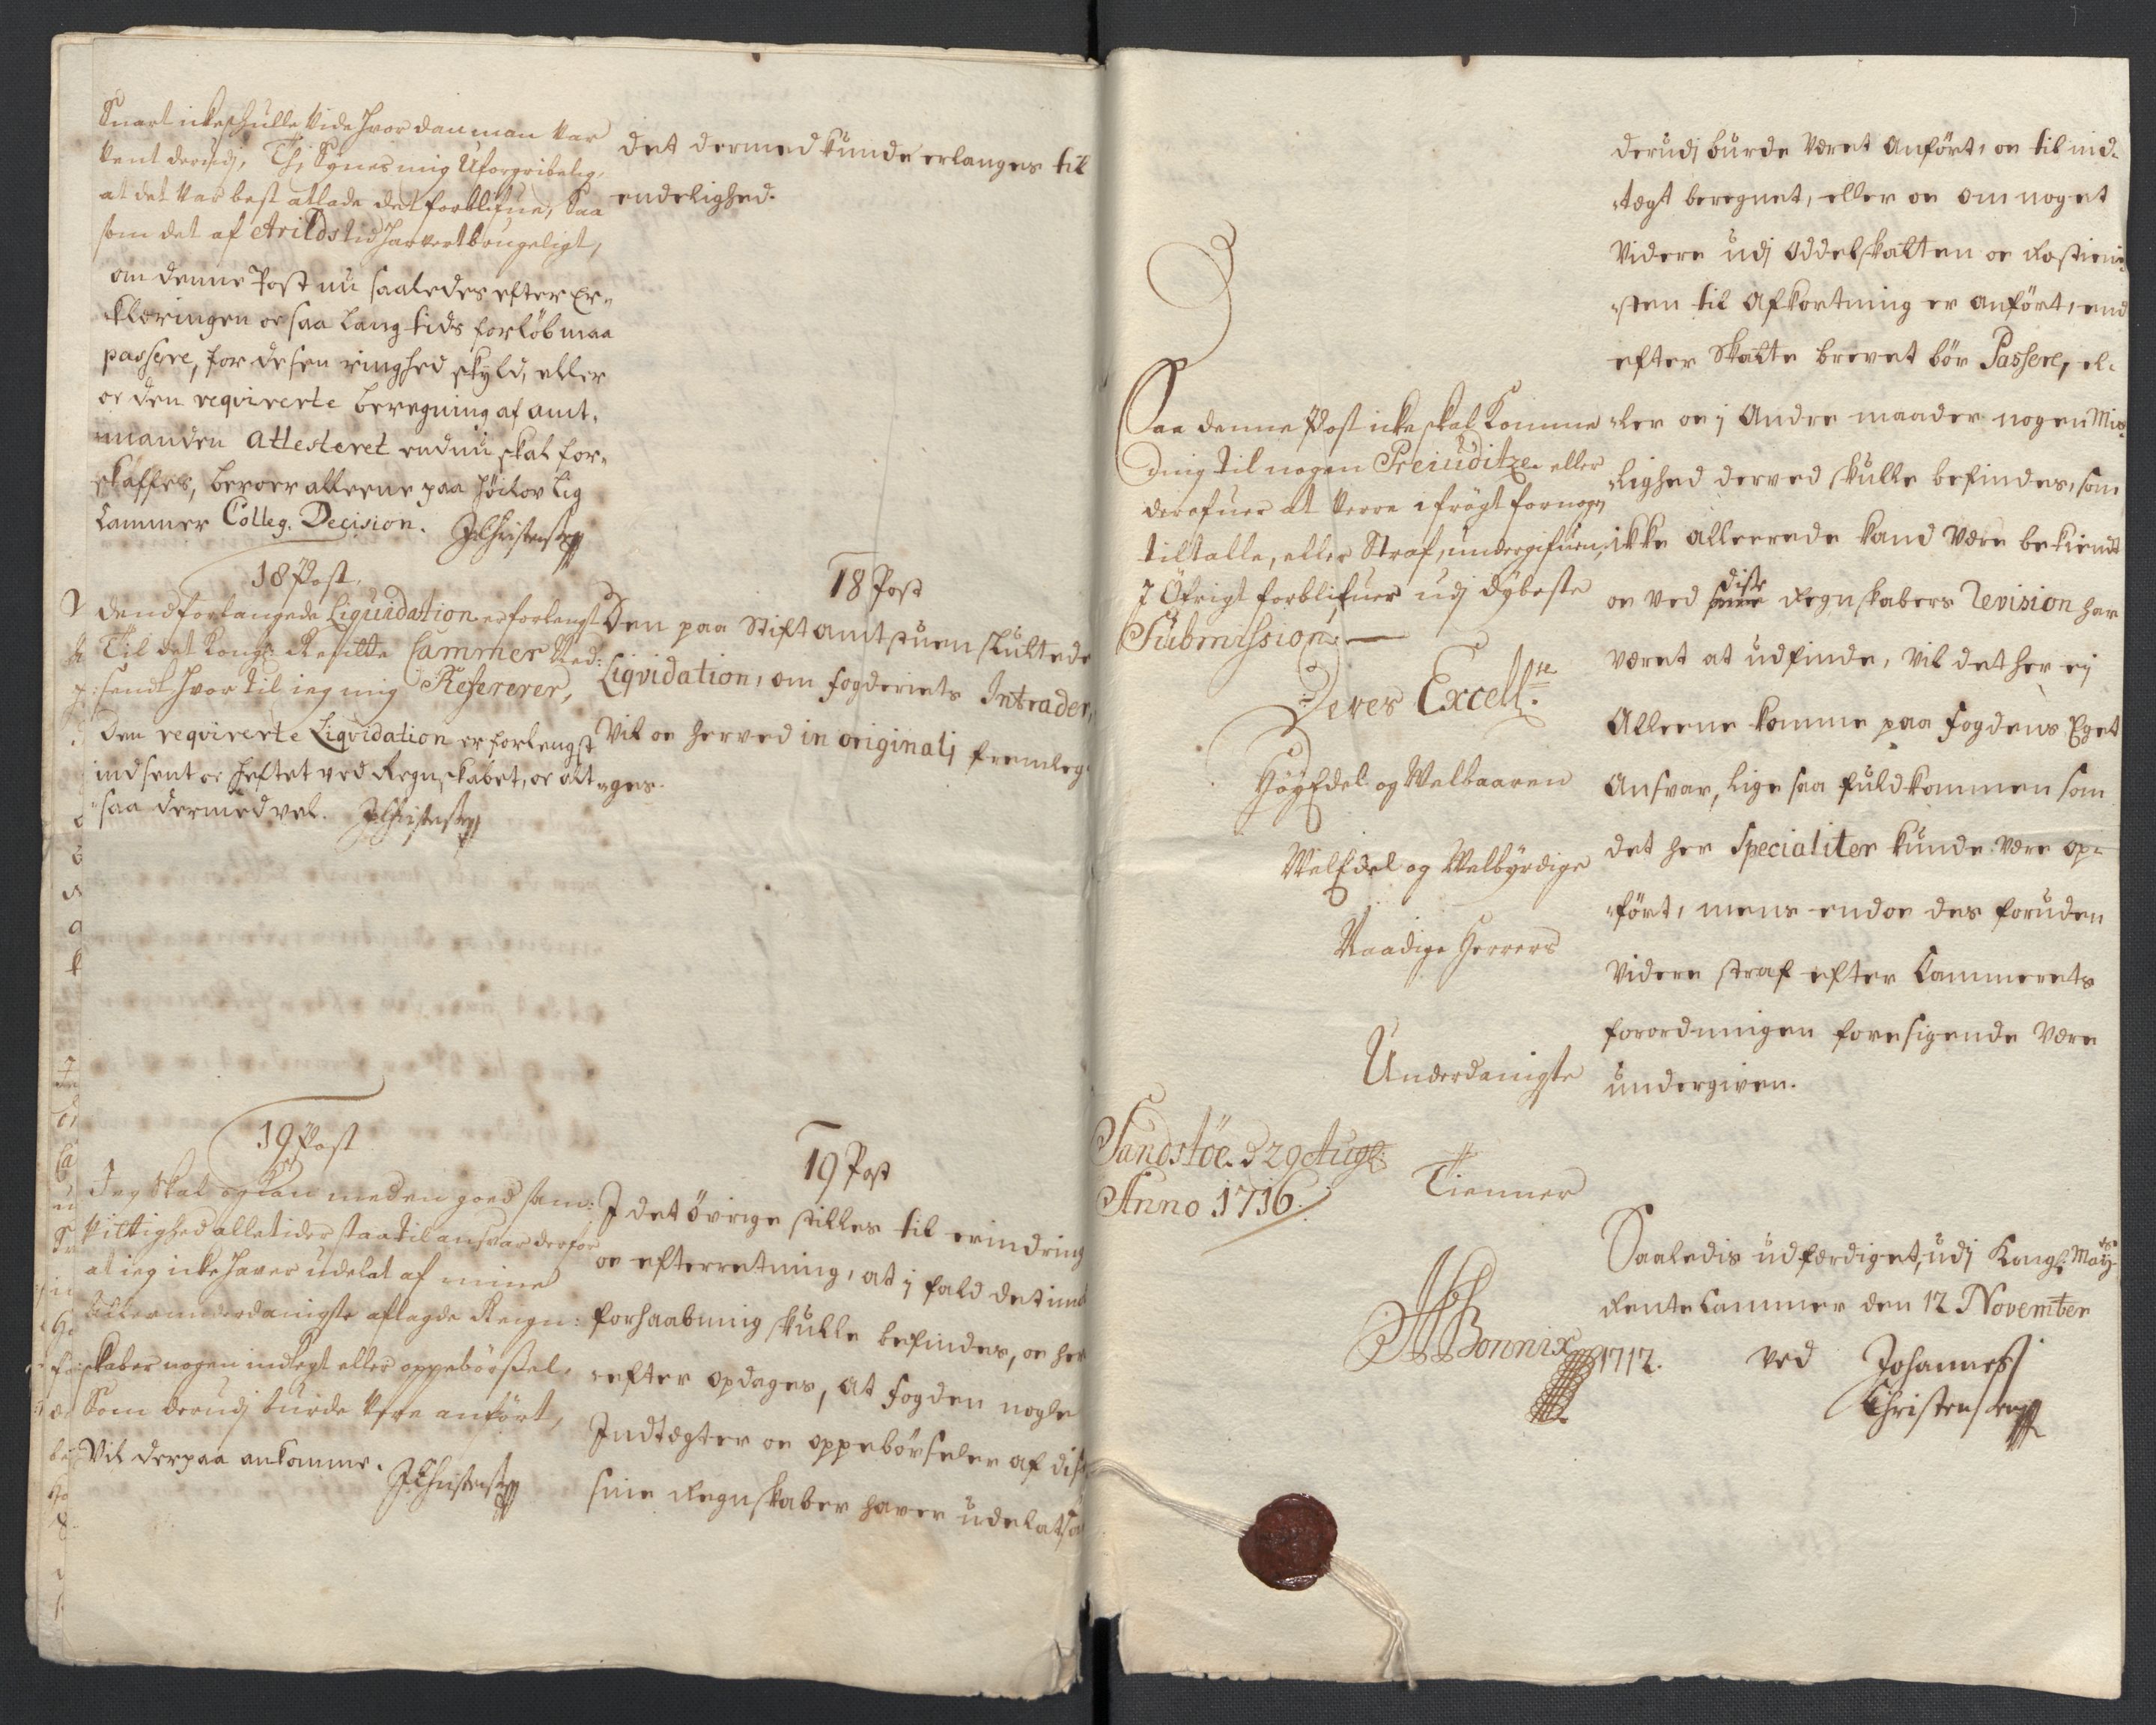 Snart icke skulle vide hvordan man var
kent derudj, Thj Synes mig Uforgribelig,
at det var best at lade det forblifue, Saa
som det af Arilds tid har vert brugeligt,
om denne Post nu saaledes efter Er-
klæringen oc saa lang tids forløb maa
passere, for desen ringhed skyld, eller
oc den reqvirerte beregning af amt-
manden Attesteret endnu skal for-
skaffes, beroer alleene paa höilovlig
Cammer Colleg. Decision. J Christensen
18 Post.
dend forlangede Liquidation er forlengst
Til det Kongl: Rentte Cammer Ned:
sendt hvor til ieg mig Refererer,
den reqvirerte Liqvidation er forlengst
indsent oc heftet ved Regnskabet, oc alt
saa dermed vel. J Christensen
19 Post
Jeg skal og kan med en goed sam:
vittighed alle tider staa til ansvar derfor
at ieg icke haver udelat af mine
allerunderdanigste aflagde Regn:
skaber nogen indtegt eller oppebörssel,
Som derudj burde være anfört,
Vil derpaa ankomme. J Christensen
det dermed kunde erlanges til
endelighed.
18 Post
Den paa Stiftamtstuen sluttede
Liqvidation, om fogderiets Intrader,
Vil oc herved in originalj fremleg-
ges.
19 Post
J det övrige stilles til erindring
oc efterretning, at j fald det imod
forhaabning skulle befindes, oc her
efter opdages, at fogden nogle
Indtegter oc oppebörseler af disse
sine Regnskaber haver udelat, som
Saa denne Post icke skal Komme
mig til nogen Preiuditze eller
derefuer at verre efrögt for nogen
tiltalle, eller Straf, undergifuen,
J Öfrigt forblifuer udj dybeste
Submission. —
Deres Excell:ce
HöyEdel og Welbaaren
WelEdel og Welbyrdige
Naadige Herrers
Underdanigste
Tienner
Sandstöe. d 29 Aug:
Anno 1716.
Bonnix
derudj burde været anfört, oc til ind-
tegt beregnet, eller oc om noget
Videre udj Oddelskatten oc Rostieni-
sten til Afkortning er anfört, end
efter Skatte brevet bör Passere, el-
ler oc j Andre maader nogen Mis-
lighed derved skulle befindes, som
ikke allerrede kand være bekiendt
oc ved disse Regnskabers Revision har
været at udfinde, vil det her ej
Alleene komme paa fogdens Eget
Ansvar, lige saa fuldkommen som
det her Specialiter kunde være op-
fört, mens endoc des foruden
Videre straf efter Cammerets
forordningen foresigende være
undergiven.
Saaledis udfærdiget, udj Kongl: Maytz
Rente Cammer den 12 November
1712. ved Johanness
Christensen